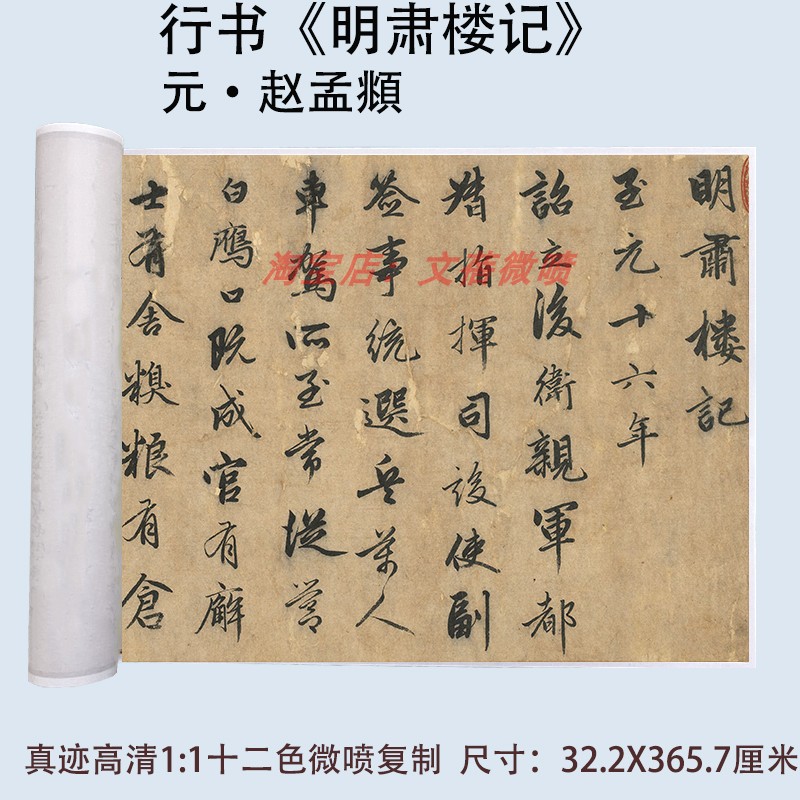 行书《明肃楼记》
元·赵孟頫
明肅樓記
至元十六年
詔立後衛親軍都
指揮司設使副
簽事統選兵萬人
車駕所至常從營
白鴈口既成官有廨
士有舍糗粮有倉
淘宝店:文微喷
真迹高清1:1十二色微喷复制 尺寸:32.2X365.7厘米